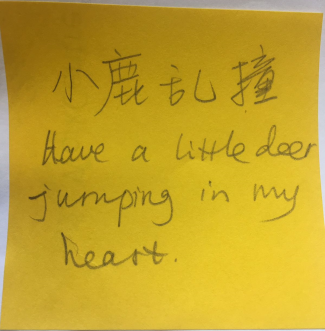 小鹿乱撞
Have a little deer
jumping in my
heart.